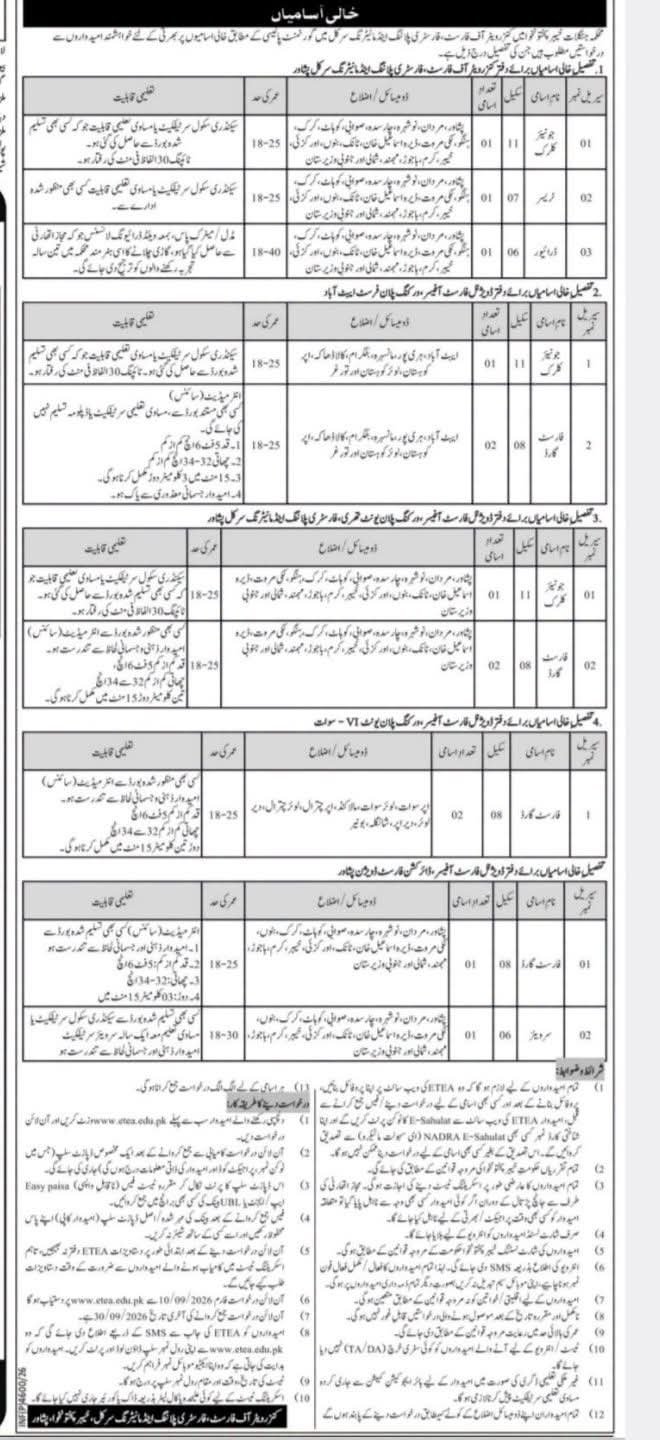 خالی آسامیاں
محکمہ جنگلات خیبر پختونخوا میں کنزرویٹر آف فارسٹ، فارسٹری پلاننگ اینڈ مانیٹرنگ سرکل میں گورنمنٹ پالیسی کے مطابق خالی اسامیوں پر بھرتی کے لئے خواہشمند امیدواروں سے
درخواستیں مطلوب ہیں جن کی تفصیل درج ذیل ہے۔
1۔ تفصیل خالی اسامیاں برائے دفتر کنزرویٹر آف فارسٹ، فارسٹری پلاننگ اینڈ مانیٹرنگ سرکل پشاور
سیریل نمبر | نام اسامی | سکیل | تعداد اسامی | ڈومیسائل / اضلاع | عمر کی حد | تعلیمی قابلیت
01 | جونیئر کلرک | 11 | 01 | پشاور، مردان، نوشہرہ، چارسدہ، صوابی، کوہاٹ، کرک، ہنگو، لکی مروت، ڈیرہ اسماعیل خان، ٹانک، بنوں، اورکزئی، خیبر، کرم، باجوڑ، مہمند، شمالی اور جنوبی وزیرستان | 18-25 | سیکنڈری سکول سرٹیفکیٹ یا مساوی تعلیمی قابلیت جو کہ کسی بھی تسلیم شدہ بورڈ سے حاصل کی گئی ہو۔ ٹائپنگ 30 الفاظ فی منٹ کی رفتار ہو۔
02 | ٹریسر | 07 | 01 | پشاور، مردان، نوشہرہ، چارسدہ، صوابی، کوہاٹ، کرک، ہنگو، لکی مروت، ڈیرہ اسماعیل خان، ٹانک، بنوں، اورکزئی، خیبر، کرم، باجوڑ، مہمند، شمالی اور جنوبی وزیرستان | 18-25 | سیکنڈری سکول سرٹیفکیٹ یا مساوی تعلیمی قابلیت کسی بھی منظور شدہ ادارے سے۔
03 | ڈرائیور | 06 | 01 | پشاور، مردان، نوشہرہ، چارسدہ، صوابی، کوہاٹ، کرک، ہنگو، لکی مروت، ڈیرہ اسماعیل خان، ٹانک، بنوں، اورکزئی، خیبر، کرم، باجوڑ، مہمند، شمالی اور جنوبی وزیرستان | 18-40 | مڈل / میٹرک پاس، بمعہ ویلڈ ڈرائیونگ لائسنس جو کہ مجاز اتھارٹی سے حاصل کیا گیا ہو، گاڑی چلانے کا اسی ہنر مند محکمہ میں تین سالہ تجربہ رکھنے والوں کو ترجیح دی جائے گی۔
2۔ تفصیل خالی اسامیاں برائے دفتر ڈویژنل فارسٹ آفیسر، ورکنگ پلان فرسٹ ایبٹ آباد
سیریل نمبر | نام اسامی | سکیل | تعداد اسامی | ڈومیسائل / اضلاع | عمر کی حد | تعلیمی قابلیت
1 | جونیئر کلرک | 11 | 01 | ایبٹ آباد، ہری پور، مانسہرہ، بٹگرام، کالا ڈھاکہ، اپر کوہستان، لوئر کوہستان اور تورغر | 18-25 | سیکنڈری سکول سرٹیفکیٹ یا مساوی تعلیمی قابلیت جو کہ کسی بھی تسلیم شدہ بورڈ سے حاصل کی گئی ہو۔ ٹائپنگ 30 الفاظ فی منٹ کی رفتار ہو۔
2 | فارسٹ گارڈ | 08 | 02 | ایبٹ آباد، ہری پور، مانسہرہ، بٹگرام، کالا ڈھاکہ، اپر کوہستان، لوئر کوہستان اور تورغر | 18-25 | انٹرمیڈیٹ (سائنس)
کسی بھی مستند بورڈ سے، مساوی تعلیمی سرٹیفکیٹ یا ڈپلومہ تسلیم نہیں کی جائے گی۔
1۔ قد 5 فٹ 6 انچ کم از کم
2۔ چھاتی 32-34 انچ کم از کم
3۔ 15 منٹ میں 3 کلومیٹر دوڑ مکمل کرنا ہوگی۔
4۔ امیدوار جسمانی معذوری سے پاک ہو۔
3۔ تفصیل خالی اسامیاں برائے دفتر ڈویژنل فارسٹ آفیسر، ورکنگ پلان یونٹ تھری، فارسٹری پلاننگ اینڈ مانیٹرنگ سرکل پشاور
سیریل نمبر | نام اسامی | سکیل | تعداد اسامی | ڈومیسائل / اضلاع | عمر کی حد | تعلیمی قابلیت
01 | جونیئر کلرک | 11 | 01 | پشاور، مردان، نوشہرہ، چارسدہ، صوابی، کوہاٹ، کرک، ہنگو، لکی مروت، ڈیرہ اسماعیل خان، ٹانک، بنوں، اورکزئی، خیبر، کرم، باجوڑ، مہمند، شمالی اور جنوبی وزیرستان | 18-25 | سیکنڈری سکول سرٹیفکیٹ یا مساوی تعلیمی قابلیت جو کہ کسی بھی تسلیم شدہ بورڈ سے حاصل کی گئی ہو۔ ٹائپنگ 30 الفاظ فی منٹ کی رفتار ہو۔
02 | فارسٹ گارڈ | 08 | 02 | پشاور، مردان، نوشہرہ، چارسدہ، صوابی، کوہاٹ، کرک، ہنگو، لکی مروت، ڈیرہ اسماعیل خان، ٹانک، بنوں، اورکزئی، خیبر، کرم، باجوڑ، مہمند، شمالی اور جنوبی وزیرستان | 18-25 | کسی بھی منظور شدہ بورڈ سے انٹرمیڈیٹ (سائنس)
امیدوار ذہنی و جسمانی لحاظ سے تندرست ہو۔
قد کم از کم 5 فٹ 6 انچ،
چھاتی کم از کم 32 سے 34 انچ
تین کلومیٹر دوڑ 15 منٹ میں مکمل کرنا ہوگی۔
4۔ تفصیل خالی اسامیاں برائے دفتر ڈویژنل فارسٹ آفیسر، ورکنگ پلان یونٹ VI - سوات
سیریل نمبر | نام اسامی | سکیل | تعداد اسامی | ڈومیسائل / اضلاع | عمر کی حد | تعلیمی قابلیت
1 | فارسٹ گارڈ | 08 | 02 | اپر سوات، لوئر سوات، مالاکنڈ، اپر چترال، لوئر چترال، دیر لوئر، دیر اپر، شانگلہ، بونیر | 18-25 | کسی بھی منظور شدہ بورڈ سے انٹرمیڈیٹ (سائنس)
امیدوار ذہنی و جسمانی لحاظ سے تندرست ہو۔
قد کم از کم 5 فٹ 6 انچ
چھاتی کم از کم 32 سے 34 انچ
دوڑ تین کلومیٹر 15 منٹ میں مکمل کرنا ہوگی۔
تفصیل خالی اسامیاں برائے دفتر ڈویژنل فارسٹ آفیسر، ڈائریکشن فارسٹ ڈویژن پشاور
سیریل نمبر | نام اسامی | سکیل | تعداد اسامی | ڈومیسائل / اضلاع | عمر کی حد | تعلیمی قابلیت
01 | فارسٹ گارڈ | 08 | 01 | پشاور، مردان، نوشہرہ، چارسدہ، صوابی، کوہاٹ، کرک، بنوں، لکی مروت، ڈیرہ اسماعیل خان، ٹانک، اورکزئی، خیبر، کرم، باجوڑ، مہمند، شمالی اور جنوبی وزیرستان | 18-25 | انٹرمیڈیٹ (سائنس) کسی بھی تسلیم شدہ بورڈ سے
1۔ امیدوار ذہنی اور جسمانی لحاظ سے تندرست ہو
2۔ قد کم از کم: 5 فٹ 6 انچ
3۔ چھاتی: 32-34 انچ
4۔ دوڑ: 03 کلومیٹر 15 منٹ میں
02 | سرویئر | 06 | 01 | پشاور، مردان، نوشہرہ، چارسدہ، صوابی، کوہاٹ، کرک، بنوں، لکی مروت، ڈیرہ اسماعیل خان، ٹانک، اورکزئی، خیبر، کرم، باجوڑ، مہمند، شمالی اور جنوبی وزیرستان | 18-30 | کسی بھی تسلیم شدہ بورڈ سے سیکنڈری سکول سرٹیفکیٹ یا مساوی تعلیم معہ ایک سالہ سرویئر سرٹیفکیٹ
امیدوار ذہنی اور جسمانی لحاظ سے تندرست ہو
شرائط و ضوابط:
1) تمام امیدواروں کے لیے لازم ہو گا کہ وہ ETEA کی ویب سائٹ پر اپنا پروفائل بنائیں، پروفائل بنانے کے بعد اور کسی بھی اسامی کے لیے درخواست دینے / فیس جمع کرانے سے قبل، امیدوار ETEA کی ویب سائٹ سے E-Sahulat کا ٹوکن پرنٹ کریں گے اور اپنا شناختی کارڈ نمبر کسی بھی NADRA E-Sahulat (ای سہولت مائیکرو) سے تصدیق کروائیں گے۔ اس تصدیق کے بغیر کسی بھی اسامی کے لیے درخواست دینا ممکن نہیں ہو گا۔
2) تمام تقرریاں حکومت خیبر پختونخوا کی مروجہ قوانین کے مطابق کی جائے گی۔
3) تمام امیدواروں کا عارضی طور پر سکریننگ ٹیسٹ دینے کی اجازت ہو گی۔ مجاز اتھارٹی کی طرف سے جانچ پڑتال کے دوران اگر کوئی امیدوار کسی بھی وجہ سے نااہل پایا گیا تو متعلقہ امیدوار کو کسی بھی وقت پراجیکٹ / بھرتی کے لیے نااہل کیا جائے گا۔
4) صرف شارٹ لسٹڈ امیدواروں کو انٹرویو کے لیے بلایا جائے گا۔
5) امیدواروں کی شارٹ لسٹنگ خیبر پختونخوا حکومت کے مروجہ قوانین کے مطابق ہو گی۔
6) انٹرویو کی اطلاع بذریعہ SMS دی جائے گی۔ لہذا تمام امیدواروں کا فعال / مکمل فعال فون نمبر ہونا چاہیے، اپنی موبائل سم تبدیل نہ کریں بصورت دیگر تمام ذمہ داری امیدواروں پر ہو گی۔
7) امیدواروں کے لیے اقلیتی / خواتین کوٹہ مروجہ قوانین کے مطابق مختص ہیں۔
8) نامکمل اور مقررہ تاریخ کے بعد موصول ہونے والی درخواستیں قابل غور نہیں ہوں گی۔
9) عمر کی بالائی حد میں رعایت مروجہ قوانین کے مطابق دی جائے گی۔
10) ٹیسٹ / انٹرویو کے لیے آنے والے امیدواروں کو کوئی سفری خرچ (TA/DA) نہیں دیا جائے گا۔
11) غیر ملکی تعلیمی ڈگری کی صورت میں امیدوار کے لیے ہائر ایجوکیشن کمیشن سے جاری کردہ مساوی تعلیمی سرٹیفکیٹ پیش کرنا لازمی ہو گا۔
12) تمام امیدواران اپنے ڈومیسائل اضلاع کے کوٹے کے مطابق درخواست دینے کے پابند ہوں گے
13) ہر اسامی کے لیے الگ الگ درخواست جمع کرانا ہو گی۔
درخواست دینے کا طریقہ کار:
1) دلچسپی رکھنے والے امیدوار سب سے پہلے www.etea.edu.pk وزٹ کریں اور آن لائن درخواست دیں۔
2) آن لائن درخواست کامیابی سے جمع کروانے کے بعد ایک مخصوص ڈپازٹ سلپ (جس میں ٹوکن نمبر، پراجیکٹ کوڈ اور امیدوار کی ذاتی معلومات درج ہوں گی) جاری کی جائے گی۔
3) اس ڈپازٹ سلپ کا پرنٹ نکال کر مقررہ ٹیسٹ فیس (ناقابل واپسی) Easy paisa ایپ / ایجنٹ یا UBL بینک کی کسی بھی برانچ میں جمع کروائیں۔
4) فیس جمع کرانے کے بعد بینک کی مہر شدہ / اصل ڈپازٹ سلپ (امیدوار کاپی) اپنے پاس محفوظ رکھیں اور اسے کسی کے ساتھ شیئر نہ کریں۔
5) آن لائن درخواست دینے کے بعد ابتدائی طور پر دستاویزات ETEA دفتر نہ بھیجیں، تاہم اسکریننگ ٹیسٹ میں کامیاب ہونے والے امیدواروں سے ضرورت کے وقت دستاویزات طلب کیے جائیں گے۔
6) آن لائن درخواست فارم 10/09/2026 سے www.etea.edu.pk پر دستیاب ہو گا
7) آن لائن درخواست دینے کی آخری تاریخ 30/09/2026 ہے۔
8) امیدواروں کو ETEA کی جانب سے SMS کے ذریعے اطلاع دی جائے گی کہ وہ www.etea.edu.pk سے اپنی رول نمبر سلپ ڈاؤن لوڈ اور پرنٹ کریں۔ امیدواروں کو ہدایت کی جاتی ہے کہ وہ اپنا ایکٹیو موبائل نمبر فراہم کریں۔
9) ٹیسٹ کی تاریخ، وقت اور مقام رول نمبر سلپ پر درج ہو گی۔
10) اسکریننگ ٹیسٹ کے لیے کوئی علیحدہ یا کال لیٹر بذریعہ ڈاک یا کوریئر جاری نہیں کیا جائے گا۔
کنزرویٹر آف فارسٹ، فارسٹری پلاننگ اینڈ مانیٹرنگ سرکل، خیبر پختونخوا، پشاور
INF(P)4600/26